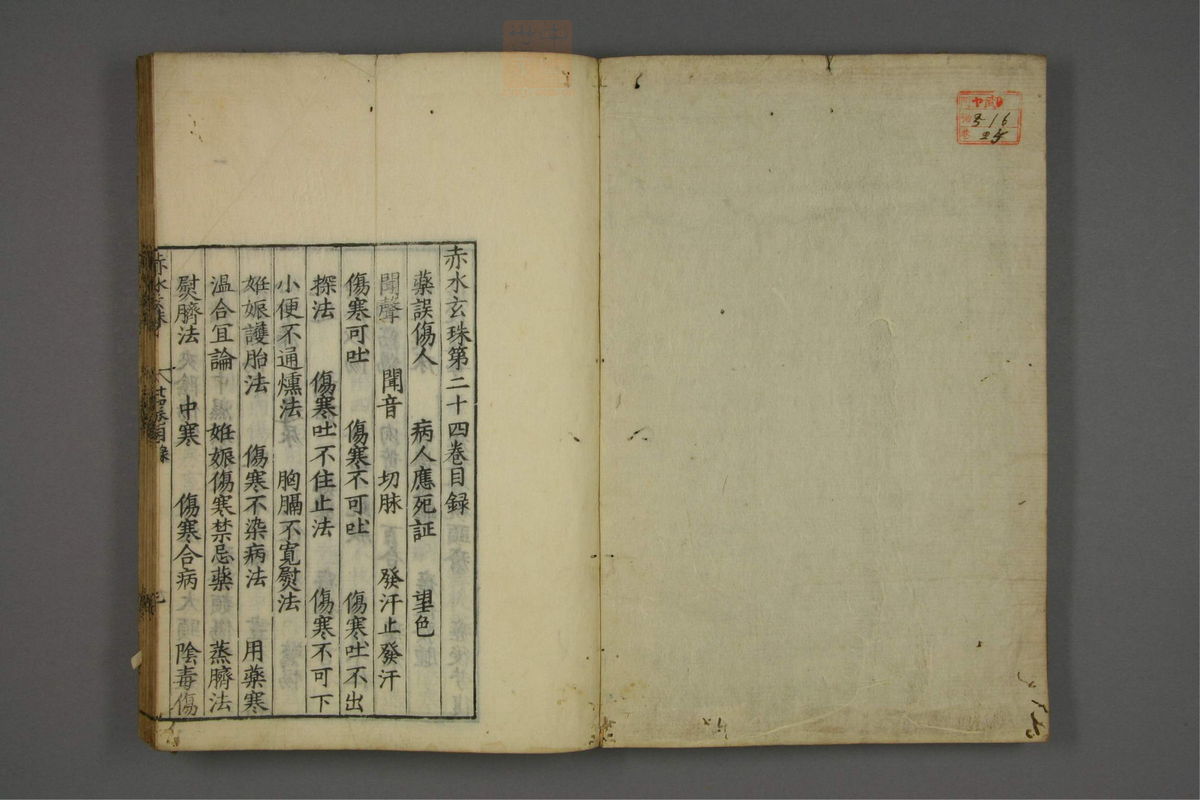 赤水玄珠第二十四巻目録
藥誤傷人 病人應死証 望色
聞聲 聞音 切脉 發汗止發汗
傷寒可吐 傷寒不可吐 傷寒吐不出
探法 傷寒吐不住止法 傷寒不可下
小便不通燻法 胸膈不寛熨法
妊娠護胎法 傷寒不染病法 用藥寒
温合宜論 妊娠傷寒禁忌藥 蒸臍法
熨臍法 中寒 傷寒合病 陰毒傷
赤水玄珠
316